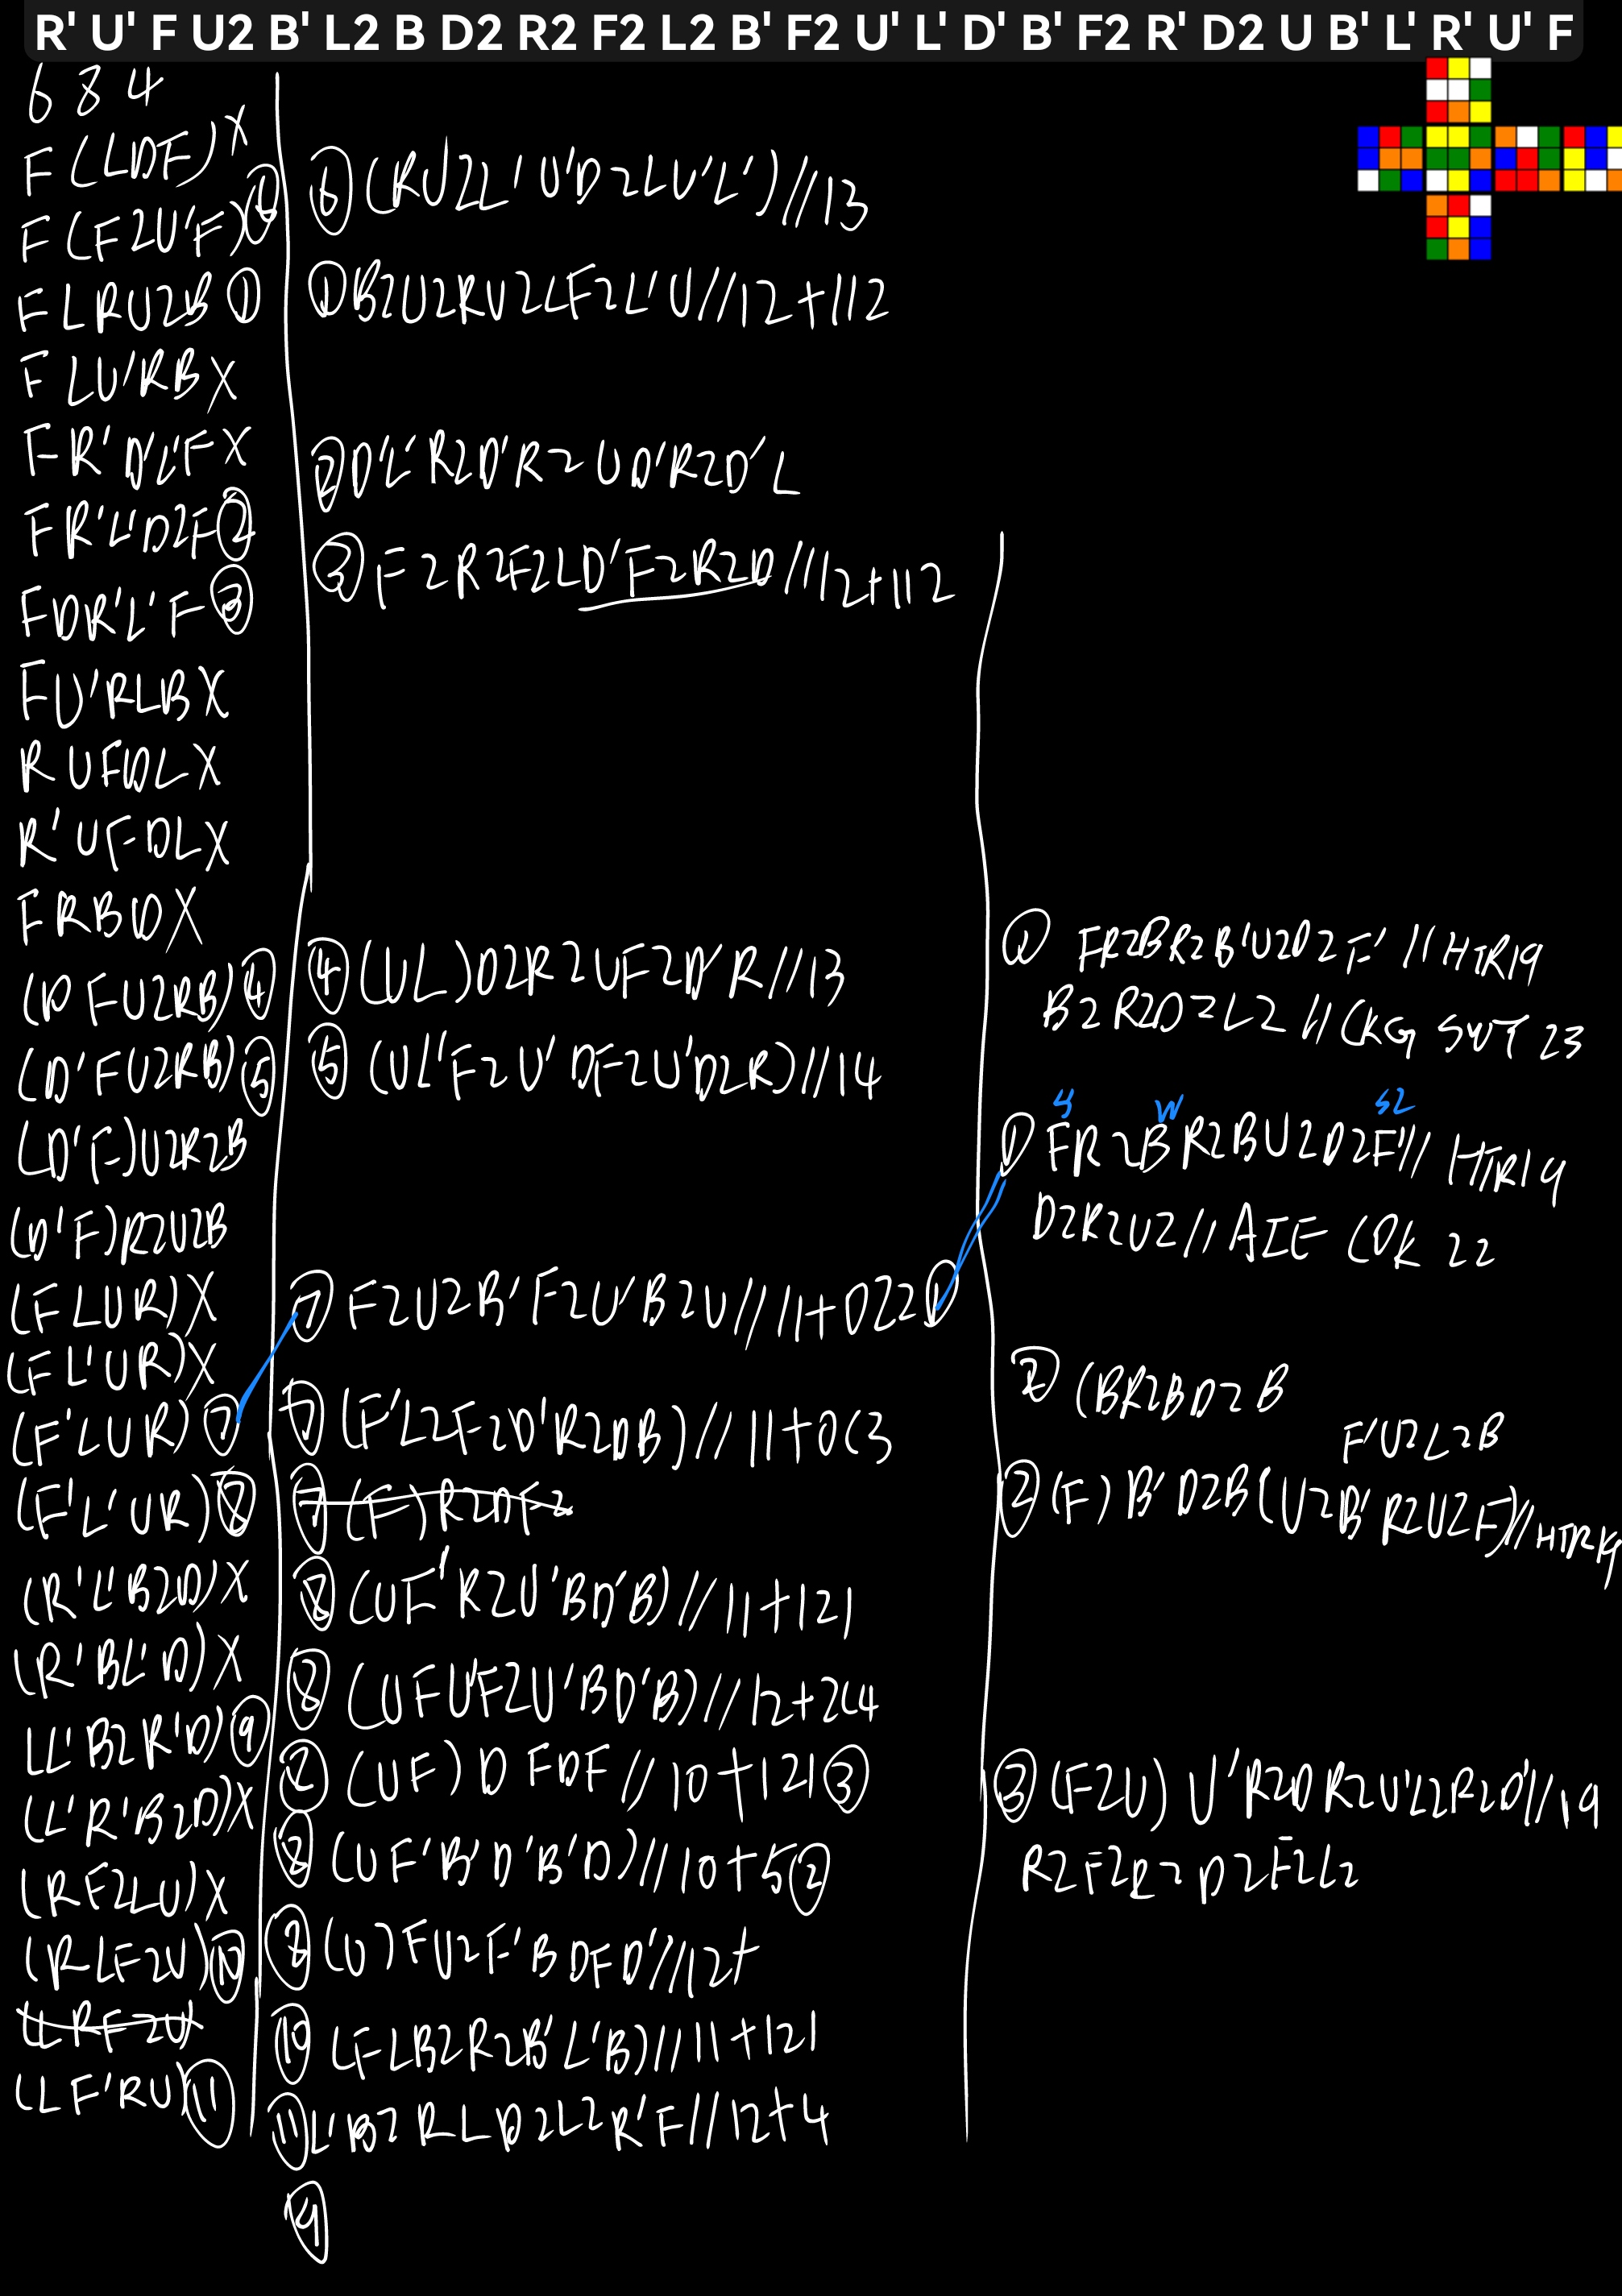 R' U' F U2 B' L2 B D2 R2 F2 L2 B' F2 U' L' D' B' F2 R' D2 U B' L' R' U' F
6 8 4
F (LDF) X
F (F2U'F) ⑥
F L R U2 B ①
F L U' R B X
F R' D' L' F X
F R' L' D2 F ②
F D R' L' F ③
F U' R L B X
R U F D L X
R' U F D L X
F R B D X
(D F U2 R B) ④
(D' F U2 R B) ⑤
(D' F) U2 R2 B
(D' F) R2 U2 B
(F L U R) X
(F L' U R) X
(F' L U R) ⑦
(F' L' U R) ⑧
(R' L' B2 D) X
(R' B L' D) X
(L' B2 R' D) ⑨
(L' R' B2 D) X
(R F2 L U) X
(R L F2 U) ⑩
(L R F2 U)
(L F' R U) ⑪
⑥ (R U2 L' U' D2 L U' L') // 13
① B2 U2 R U2 L F2 L' U // 12 + 112
② D' L' R2 D' R2 U D' R2 D' L
③ F2 R2 F2 L D' F2 R2 D // 12 + 112
④ (U L) D2 R2 U F2 D' R // 13
⑤ (U L' F2 U' D F2 U' D2 R) // 14
⑦ F2 U2 B' F2 U' B2 U // 11 + 022 ①
⑦ (F' L2 F2 D' R2 D B) // 11 + 0C3
⑦ (F) R2 D F2
⑧ (U F' R2 U' B D' B) // 11 + 121
⑧ (U F U' F2 U' B D' B) // 12 + 2C4
⑧ (U F) D F D F // 10 + 121 ③
⑧ (U F' B' D' B' D) // 10 + 5 ②
⑧ (U) F U2 F' B D F D' // 12 +
⑩ (F L B2 R2 B' L' B) // 11 + 121
⑪ L' B2 R L D2 L2 R' F // 12 + 4
⑨
① F R2 B R2 B' U2 D2 F' // HTR 19
B2 R2 D2 L2 // CKG SWT 23
4 W S2
① F R2 B R2 B U2 D2 F' // HTR 19
D2 R2 U2 // AIE COK 22
② (B R2 B D2 B
F' U2 L2 B
② (F) B' D2 B (U2 B' R2 U2 F) // HTR 19
③ (F2 U) U' R2 D R2 U' L2 R2 D' // 19
R2 F2 R2 D2 F2 L2